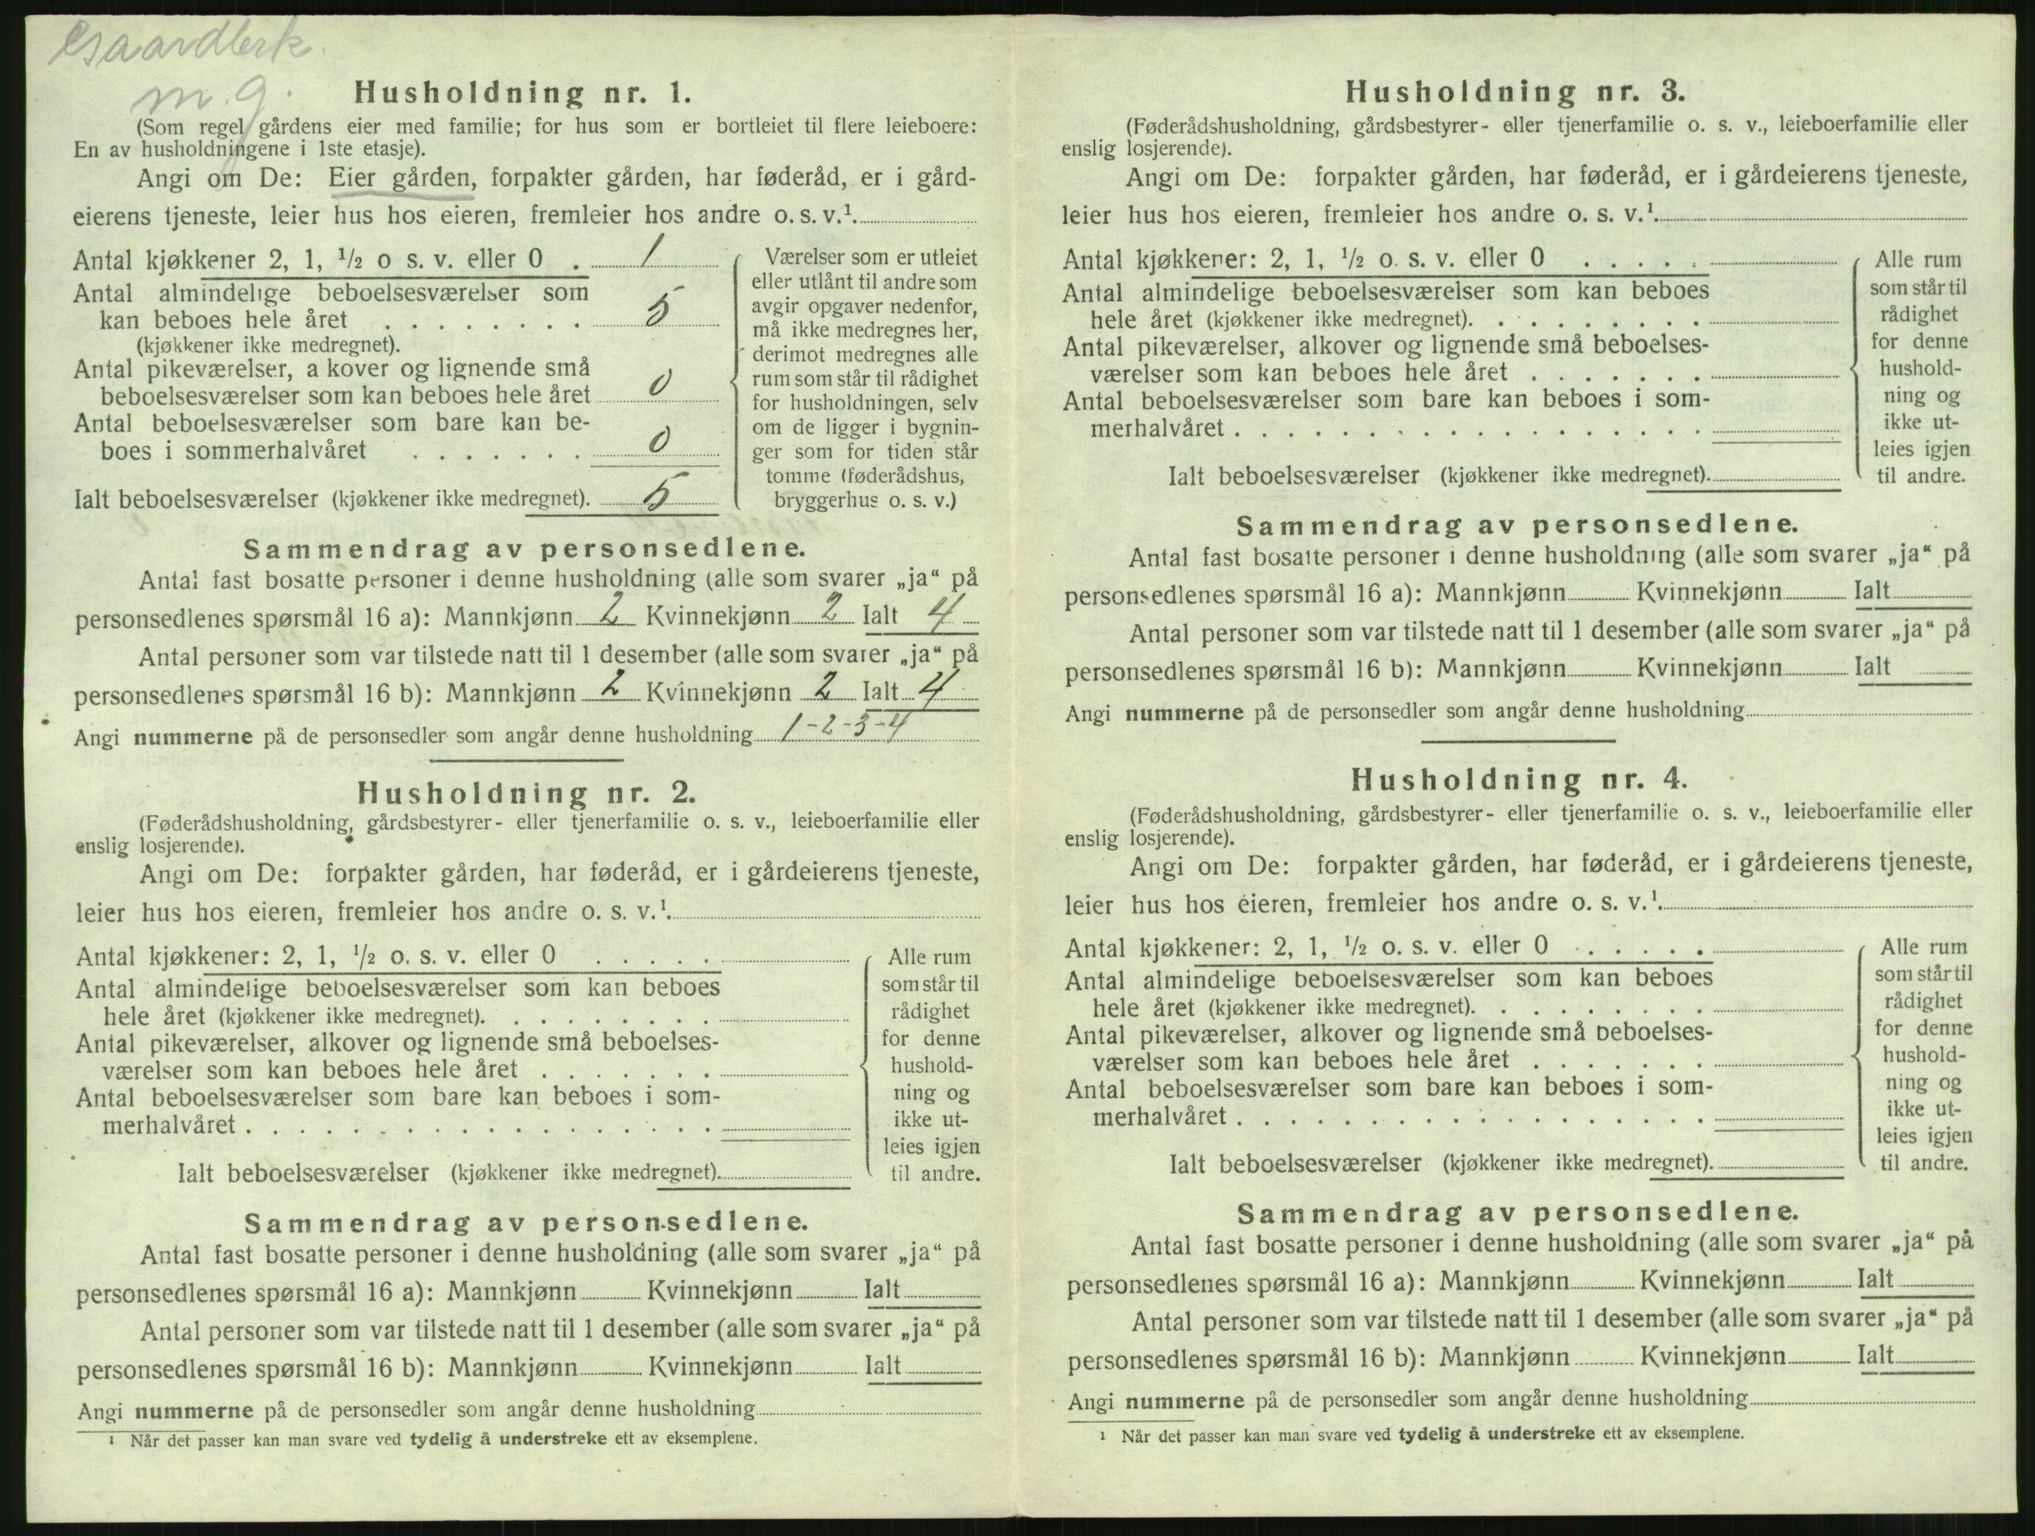 Gaardbrk.
m. g.
Husholdning nr. 1.
(Som regel gårdens eier med familie; for hus som er bortleiet til flere leieboere:
En av husholdningene i 1ste etasje).
Angi om De: Eier gården, forpakter gården, har føderåd, er i gård-
eierens tjeneste, leier hus hos eieren, fremleier hos andre o. s. v.¹.
Antal kjøkkener 2, 1, ½ o s. v. eller 0 . 1
Antal almindelige beboelsesværelser som
kan beboes hele året . . . . . . . . 5
(kjøkkener ikke medregnet).
Antal pikeværelser, a kover og lignende små
beboelsesværelser som kan beboes hele året 0
Antal beboelsesværelser som bare kan be-
boes i sommerhalvåret . . . . . . . 0
Ialt beboelsesværelser (kjøkkener ikke medregnet). 5
Værelser som er utleiet
eller utlånt til andre som
avgir opgaver nedenfor,
må ikke medregnes her,
derimot medregnes alle
rum som står til rådighet
for husholdningen, selv
om de ligger i bygnin-
ger som for tiden står
tomme (føderådshus,
bryggerhus o. s. v.)
Sammendrag av personsedlene.
Antal fast bosatte personer i denne husholdning (alle som svarer „ja“ på
personsedlenes spørsmål 16 a): Mannkjønn 2 Kvinnekjønn 2 Ialt 4
Antal personer som var tilstede natt til 1 desember (alle som svarer „ja“ på
personsedlenes spørsmål 16 b): Mannkjønn 2 Kvinnekjønn 2 Ialt 4
Angi nummerne på de personsedler som angår denne husholdning 1-2-3-4
Husholdning nr. 2.
(Føderådshusholdning, gårdsbestyrer- eller tjenerfamilie o. s. v., leieboerfamilie eller
enslig losjerende).
Angi om De: forpakter gården, har føderåd, er i gårdeierens tjeneste,
leier hus hos eieren, fremleier hos andre o. s. v.¹.
Antal kjøkkener: 2, 1, ½ o. s. v. eller 0 . . . . .
Antal almindelige beboelsesværelser som kan beboes
hele året (kjøkkener ikke medregnet). . . . . . . . .
Antal pikeværelser, alkover og lignende små beboelses-
værelser som kan beboes hele året . . . . . . .
Antal beboelsesværelser som bare kan beboes i som-
merhalvåret . . . . . . . . . . . . . . . . . .
Ialt beboelsesværelser (kjøkkener ikke medregnet).
Alle rum
som står til
rådighet
for denne
hushold-
ning og
ikke ut-
leies igjen
til andre.
Sammendrag av personsedlene.
Antal fast bosatte personer i denne husholdning (alle som svarer „ja“ på
personsedlenes spørsmål 16 a): Mannkjønn Kvinnekjønn Ialt
Antal personer som var tilstede natt til 1 desember (alle som svarer „ja“ på
personsedlenes spørsmål 16 b): Mannkjønn Kvinnekjønn Ialt
Angi nummerne på de personsedler som angår denne husholdning
¹ Når det passer kan man svare ved tydelig å understreke ett av eksemplene.
Husholdning nr. 3.
(Føderådshusholdning, gårdsbestyrer- eller tjenerfamilie o. s. v., leieboerfamilie eller
enslig losjerende).
Angi om De: forpakter gården, har føderåd, er i gårdeierens tjeneste,
leier hus hos eieren, fremleier hos andre o. s. v.¹.
Antal kjøkkener: 2, 1, ½ o. s. v. eller 0 . . . . .
Antal almindelige beboelsesværelser som kan beboes
hele året (kjøkkener ikke medregnet). . . . . . . . .
Antal pikeværelser, alkover og lignende små beboelses-
værelser som kan beboes hele året . . . . . . .
Antal beboelsesværelser som bare kan beboes i som-
merhalvåret . . . . . . . . . . . . . . . . . .
Ialt beboelsesværelser (kjøkkener ikke medregnet).
Alle rum
som står til
rådighet
for denne
hushold-
ning og
ikke ut-
leies igjen
til andre.
Sammendrag av personsedlene.
Antal fast bosatte personer i denne husholdning (alle som svarer „ja“ på
personsedlenes spørsmål 16 a): Mannkjønn Kvinnekjønn Ialt
Antal personer som var tilstede natt til 1 desember (alle som svarer „ja“ på
personsedlenes spørsmål 16 b): Mannkjønn Kvinnekjønn Ialt
Angi nummerne på de personsedler som angår denne husholdning
Husholdning nr. 4.
(Føderådshusholdning, gårdsbestyrer- eller tjenerfamilie o. s. v., leieboerfamilie eller
enslig losjerende).
Angi om De: forpakter gården, har føderåd, er i gårdeierens tjeneste,
leier hus hos eieren, fremleier hos andre o. s. v.¹.
Antal kjøkkener: 2, 1, ½ o. s. v. eller 0 . . . . .
Antal almindelige beboelsesværelser som kan beboes
hele året (kjøkkener ikke medregnet). . . . . . . . .
Antal pikeværelser, alkover og lignende små beboelses-
værelser som kan beboes hele året . . . . . . .
Antal beboelsesværelser som bare kan beboes i som-
merhalvåret . . . . . . . . . . . . . . . . . .
Ialt beboelsesværelser (kjøkkener ikke medregnet).
Alle rum
som står til
rådighet
for denne
hushold-
ning og
ikke ut-
leies igjen
til andre.
Sammendrag av personsedlene.
Antal fast bosatte personer i denne husholdning (alle som svarer „ja“ på
personsedlenes spørsmål 16 a): Mannkjønn Kvinnekjønn Ialt
Antal personer som var tilstede natt til 1 desember (alle som svarer „ja“ på
personsedlenes spørsmål 16 b): Mannkjønn Kvinnekjønn Ialt
Angi nummerne på de personsedler som angår denne husholdning
¹ Når det passer kan man svare ved tydelig å understreke ett av eksemplene.